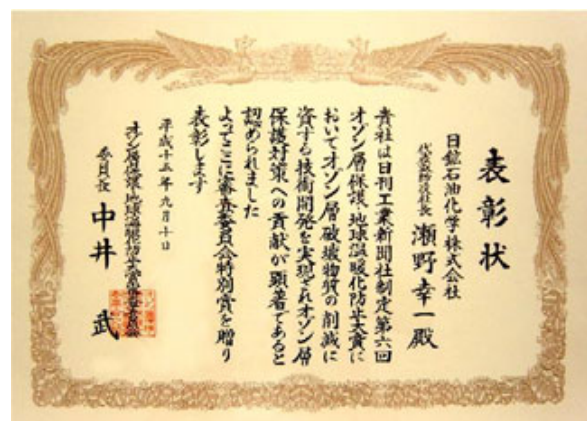 表彰状
日鉱石油化学株式会社
代表取締役社長 瀬野幸一殿
貴社は日刊工業新聞社制定第六回
オゾン層保護・地球温暖化防止大賞に
おいてオゾン層破壊物質の削減に
資する技術開発を実現されオゾン層
保護対策への貢献が顕著であると
認められました
よってここに審査委員会特別賞を贈り
表彰します
平成十五年九月十日
オゾン層保護・地球温暖化防止大賞審査委員会
委員長 中井 武